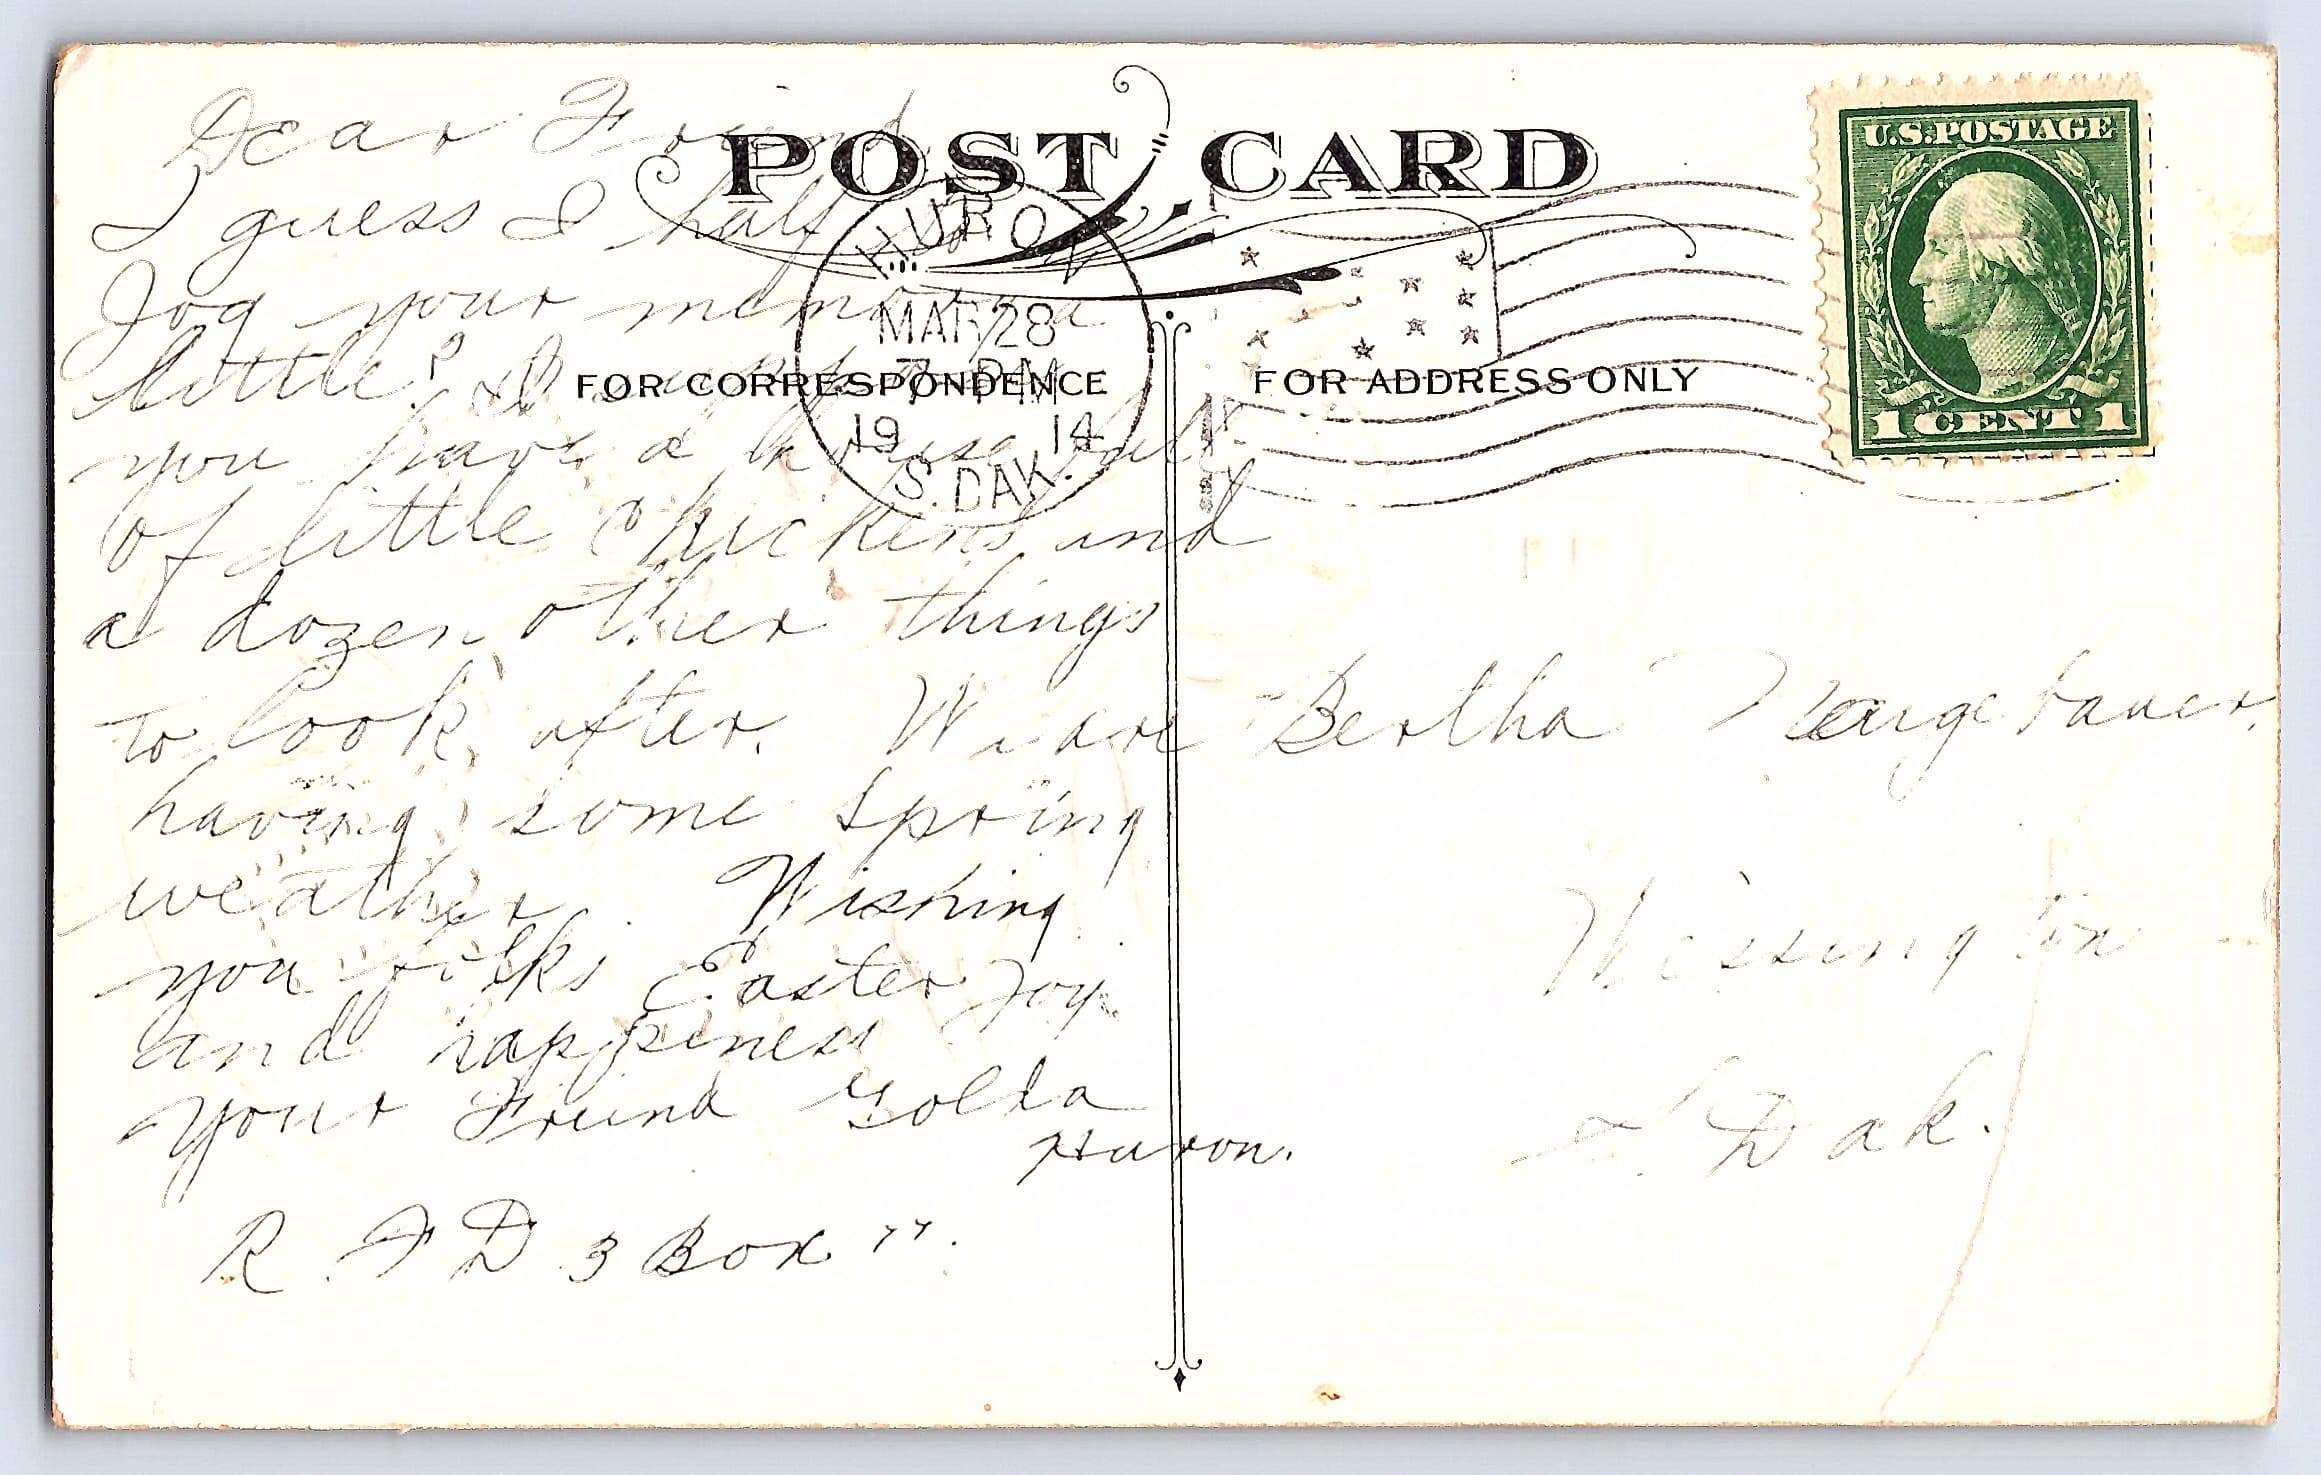 POST CARD
U.S. POSTAGE
1 CENT 1
HURON
MAR 28
7 PM
19 14
S. DAK.
FOR CORRESPONDENCE
FOR ADDRESS ONLY
Dear Friend
I guess I half to
Jog your memory a
little? I
you have a house full
of little chickens and
a dozen other things
to look after. We are
having some spring
weather. Wishing
you folks Easter Joy
and happiness
Your Freind Golda
Huron.
R.F D 3 Box 77.
Bertha
Wessington
S. Dak.